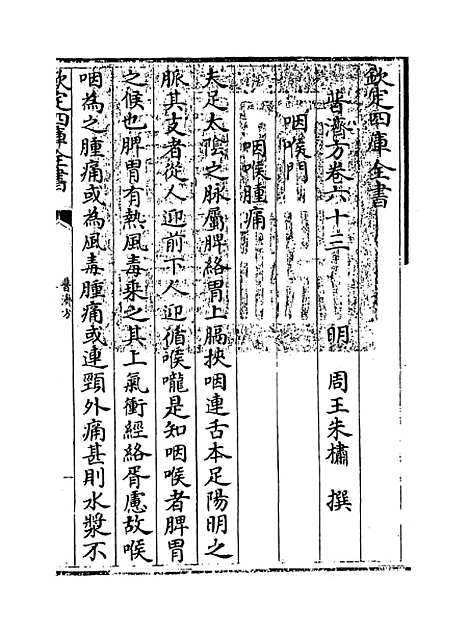 欽定四庫全書
普濟方卷六十三　明　周王朱橚　撰
咽喉門
咽喉腫痛
夫足太陰之脉屬脾絡胃上膈挾咽連舌本足陽明之
脈其支者從人迎前下人迎循喉嚨是知咽喉者脾胃
之候也脾胃有熱風毒乘之其上氣衝經絡胥慮故喉
咽為之腫痛或為風毒腫痛或連頸外痛甚則水漿不
欽定四庫全書
普濟方
一